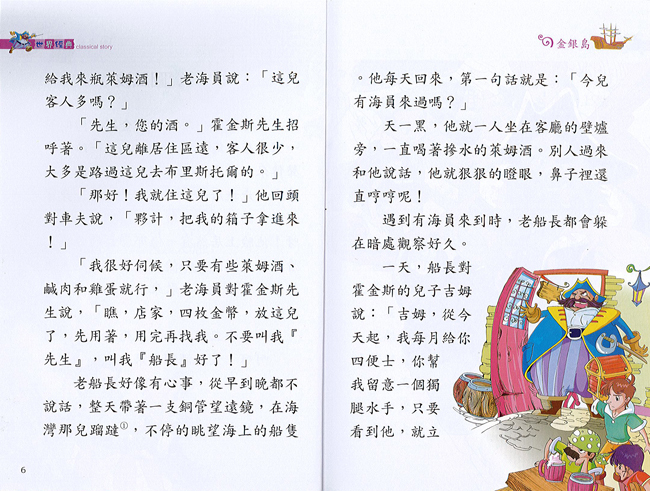 世界經典 classical story
給我來瓶萊姆酒！」老海員說：「這兒
客人多嗎？」
「先生，您的酒。」霍金斯先生招
呼著。「這兒離居住區遠，客人很少，
大多是路過這兒去布里斯托爾的。」
「那好！我就住這兒了！」他回頭
對車夫說，「夥計，把我的箱子拿進來
！」
「我很好伺候，只要有些萊姆酒、
鹹肉和雞蛋就行，」老海員對霍金斯先
生說，「瞧，店家，四枚金幣，放這兒
了，先用著，用完再找我。不要叫我『
先生』，叫我『船長』好了！」
老船長好像有心事，從早到晚都不
說話，整天帶著一支銅管望遠鏡，在海
灣那兒蹓躂①，不停的眺望海上的船隻
6
金銀島
。他每天回來，第一句話就是：「今兒
有海員來過嗎？」
天一黑，他就一人坐在客廳的壁爐
旁，一直喝著摻水的萊姆酒。別人過來
和他說話，他就狠狠的瞪眼，鼻子裡還
直哼哼呢！
遇到有海員來到時，老船長都會躲
在暗處觀察好久。
一天，船長對
霍金斯的兒子吉姆
說：「吉姆，從今
天起，我每月給你
四便士，你幫
我留意一個獨
腿水手，只要
看到他，就立